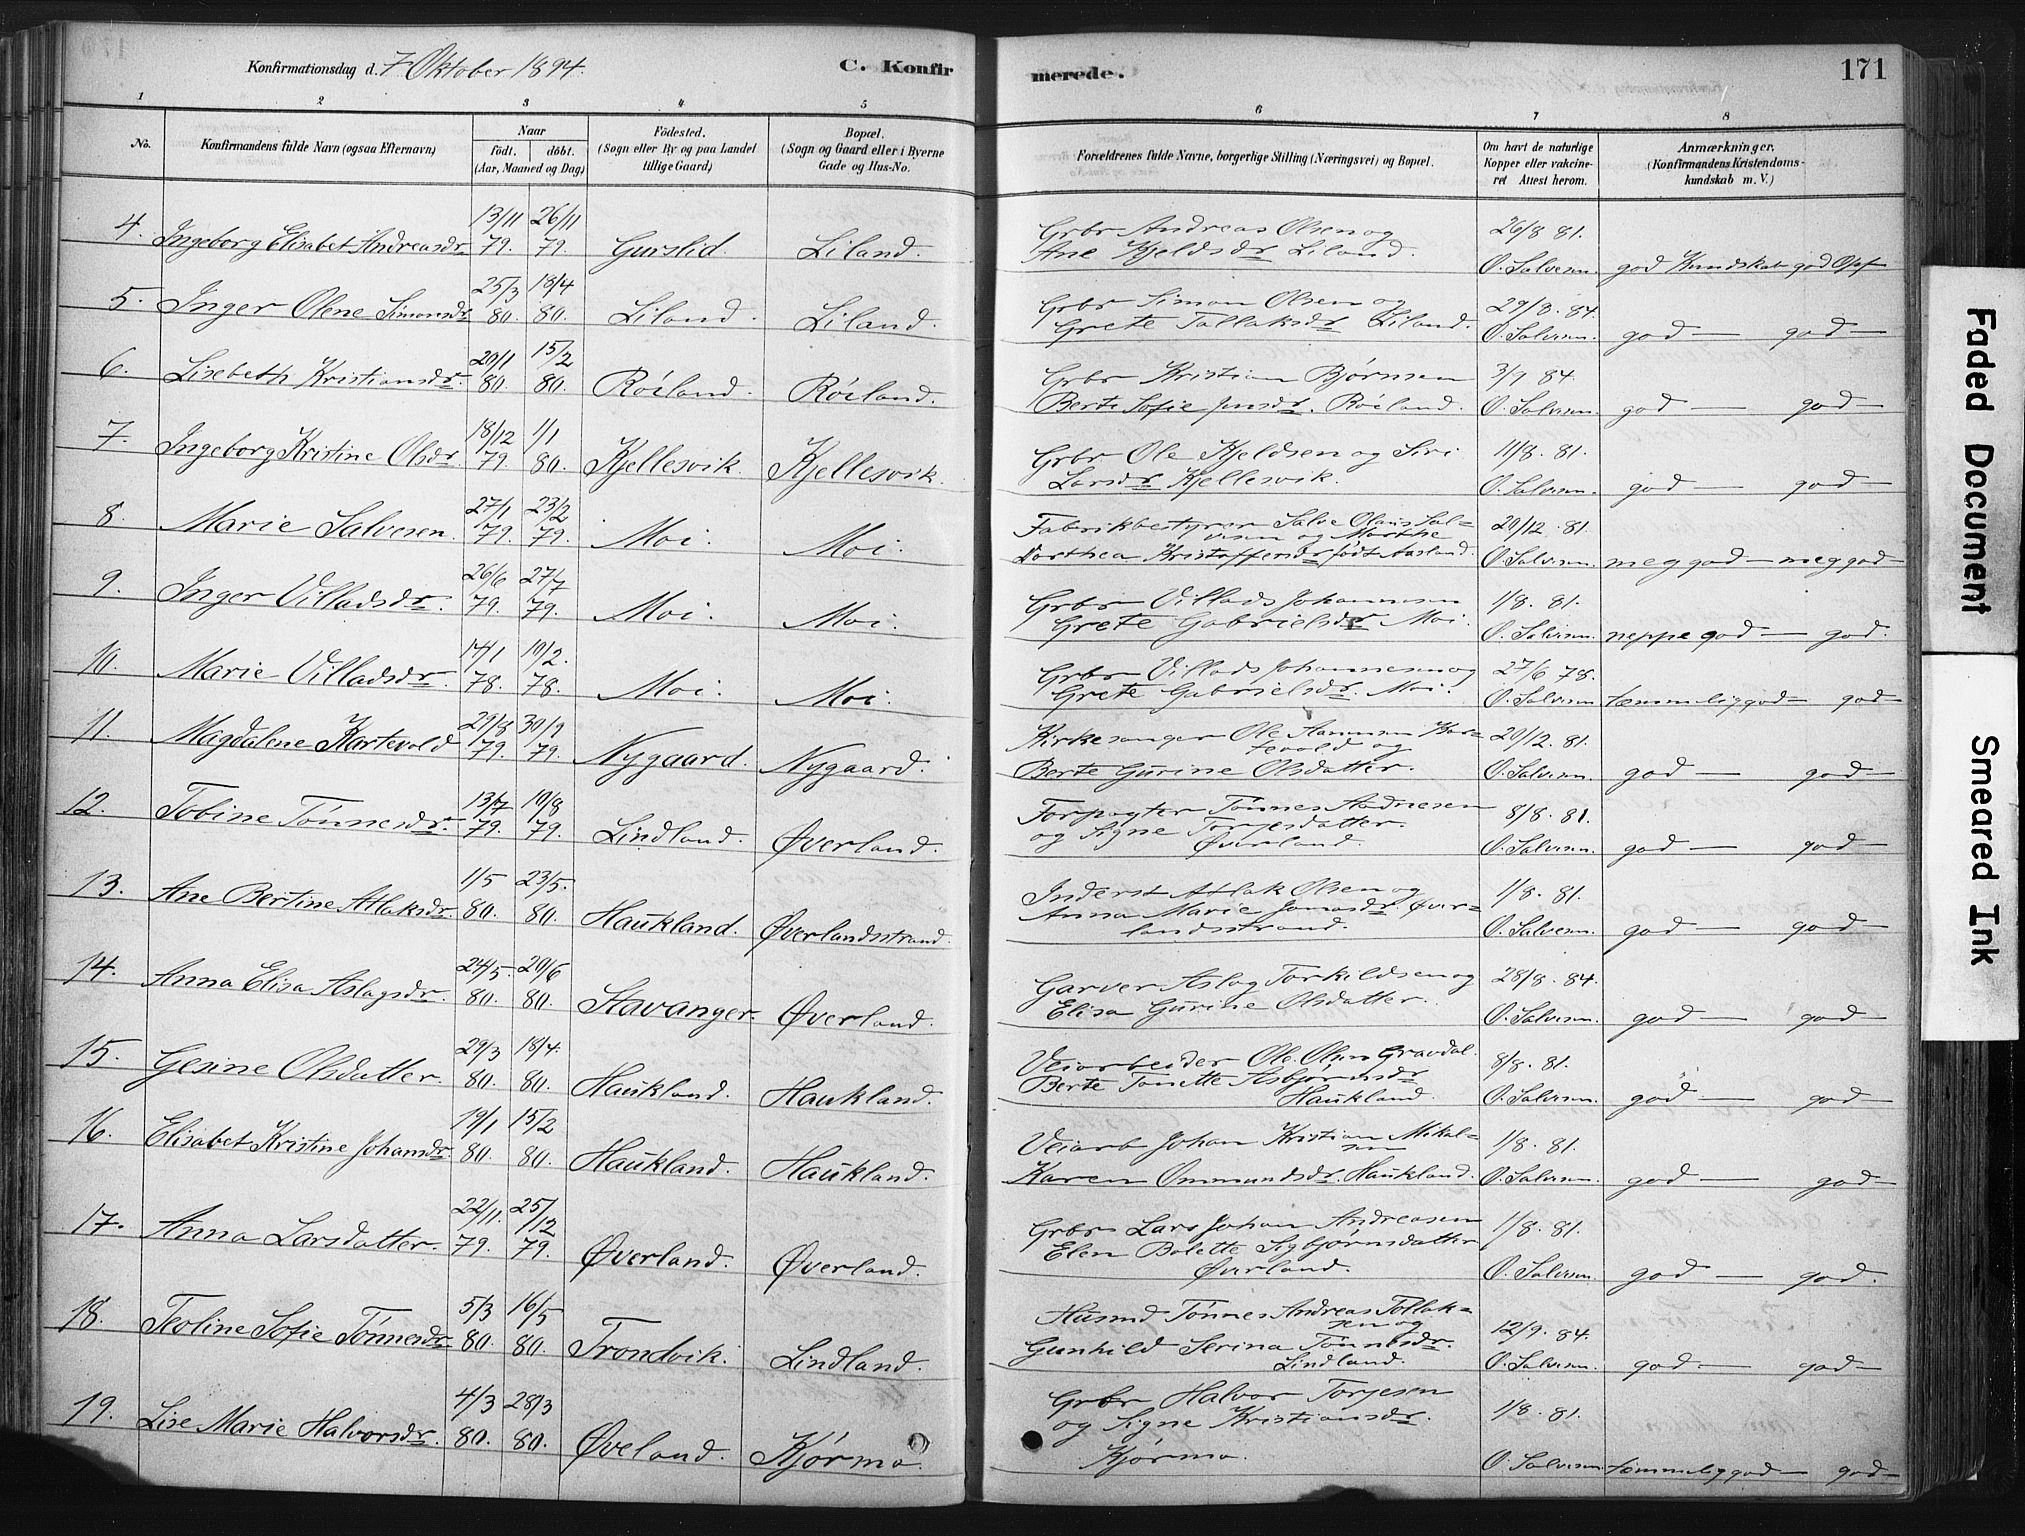 Konfirmationsdag d. 7 Oktober 1894. C. Konfir merede. 171
1 2 3 4 5 6 7 8
No. Konfirmandens fulde Navn (ogsaa Efternavn) Naar født. døbt. (Aar, Maaned og Dag) Fødested. (Sogn eller By og paa Landet tillige Gaard) Bopæl. (Sogn og Gaard eller i Byerne Gade og Hus-No. Forældrenes fulde Navne, borgerlige Stilling (Næringsvei) og Bopæl. Om havt de naturlige Kopper eller vakcineret Attest herom. Anmærkninger. (Konfirmandens Kristendomskundskab m. V.)
4. Ingeborg Elisabet Andreasdr 13/11 79. 26/11 79. Gurslid. Liland. Grbr Andreas Olsen og
Ane Kjeldsdr Liland. 26/8 81. O. Salvesen. god Kundskab god Opf
5. Inger Olene Simonsdr 25/3 80. 18/4 80. Liland. Liland. Grbr Simon Olsen og
Grete Tollaksdr Liland. 29/8. 84. O. Salvesen. god — god —
6. Lisebeth Kristiansdr. 20/1 80. 15/2 80. Röiland. Röiland. Grbr Kristian Bjørnsen
Berte Sofie Jensdr. Röiland. 3/9 84. O. Salvesen. god — god —
7. Ingeborg Kristine Olsdr. 18/12 79. 1/1 80. Kjellesvik. Kjellesvik. Grbr Ole Kjeldsen og Siri
Larsdr Kjellesvik. 11/8. 81. O. Salvesen. god — god —
8. Marie Salvesen. 27/1 79. 23/2 79. Moi. Moi. Fabrikbestyrer Salve Olaus Sal=
vesen og Marthe
Dorthea Kristoffersdr født Aasland. 20/12. 81. O. Salvesen. meg god — meg god —
9. Inger Villadsdr. 26/6 79. 27/7 79. Moi. Moi. Grbr Villads Johannesen
Grete Gabrielsdr Moi. 1/8. 81. O. Salvesen. neppe god — god.
10. Marie Villadsdr. 14/1 78. 10/2. 78. Moi. Moi. Grbr Villads Johannesen og
Grete Gabrielsdr. Moi. 27/6 78. O. Salvesen. temmelig god — god —
11. Magdalene Kartevold 29/8 79. 30/9 79. Nygaard. Nygaard. Kirkesanger Ole Hansen Kar=
tevold og
Berte Gurine Olsdatter. 20/12. 81. O. Salvesen. god — god —
12. Tobine Tönnesdr. 13/7 79. 10/8 79. Lindland. Øverland. Forpagter Tönnes Aadnesen
og Signe Torjesdatter.
Øverland. 8/8. 81. O. Salvesen. god — god —
13. Ane Bertine Atlaksdr. 1/5 80. 23/5. 80. Haukland. Øverlandsstrand. Inderst Atlak Olsen og
Anna Marie Jonasdr. Øver=
landsstrand. 1/8. 81. O. Salvesen. god — god —
14. Anna Elisa Aslagsdr. 24/5. 80. 20/6 80. Stavanger. Øverland. Garver Aslag Torkildsen og
Elisa Gurine Olsdatter. 28/8. 84. O. Salvesen. god — god —
15. Gesine Olsdatter. 29/3 80. 18/4. 80. Haukland. Haukland. Veiarbeider Ole Olsen Gravdal.
Berte Tonette Asbjörnsdr
Haukland. 8/8. 81. O. Salvesen. god — god —
16. Elisabet Kristine Johansdr. 19/1 80. 15/2 80. Haukland. Haukland. Veiarb Johan Kristian Mikal=
sen
Karen Ommundsdr. Haukland. 1/8. 81. O. Salvesen. god — god —
17. Anna Larsdatter. 22/11. 79. 25/12 79. Øverland. Øverland. Grbr Lars Johan Andreasen
Elen Bolette Sigbjörnsdatter
Øverland. 1/8. 81. O. Salvesen. god — god.
18. Teoline Sofie Tönnesdr 5/3 80. 16/5 80. Trondvik. Lindland. Husmd Tönnes Andreas Tollak=
sen og
Gunhild Serina Tönnesdr.
Lindland. 12/9. 84. O. Salvesen. god — god —
19. Lise Marie Halvorsdr. 4/3 80. 28/3 80. Øveland. Kjörmo. Grbr Halvor Torjesen
og Signe Kristiansdr.
Kjörmo. 1/8. 81. O. Salvesen. temmelig god — god —
Faded Document
Smeared Ink